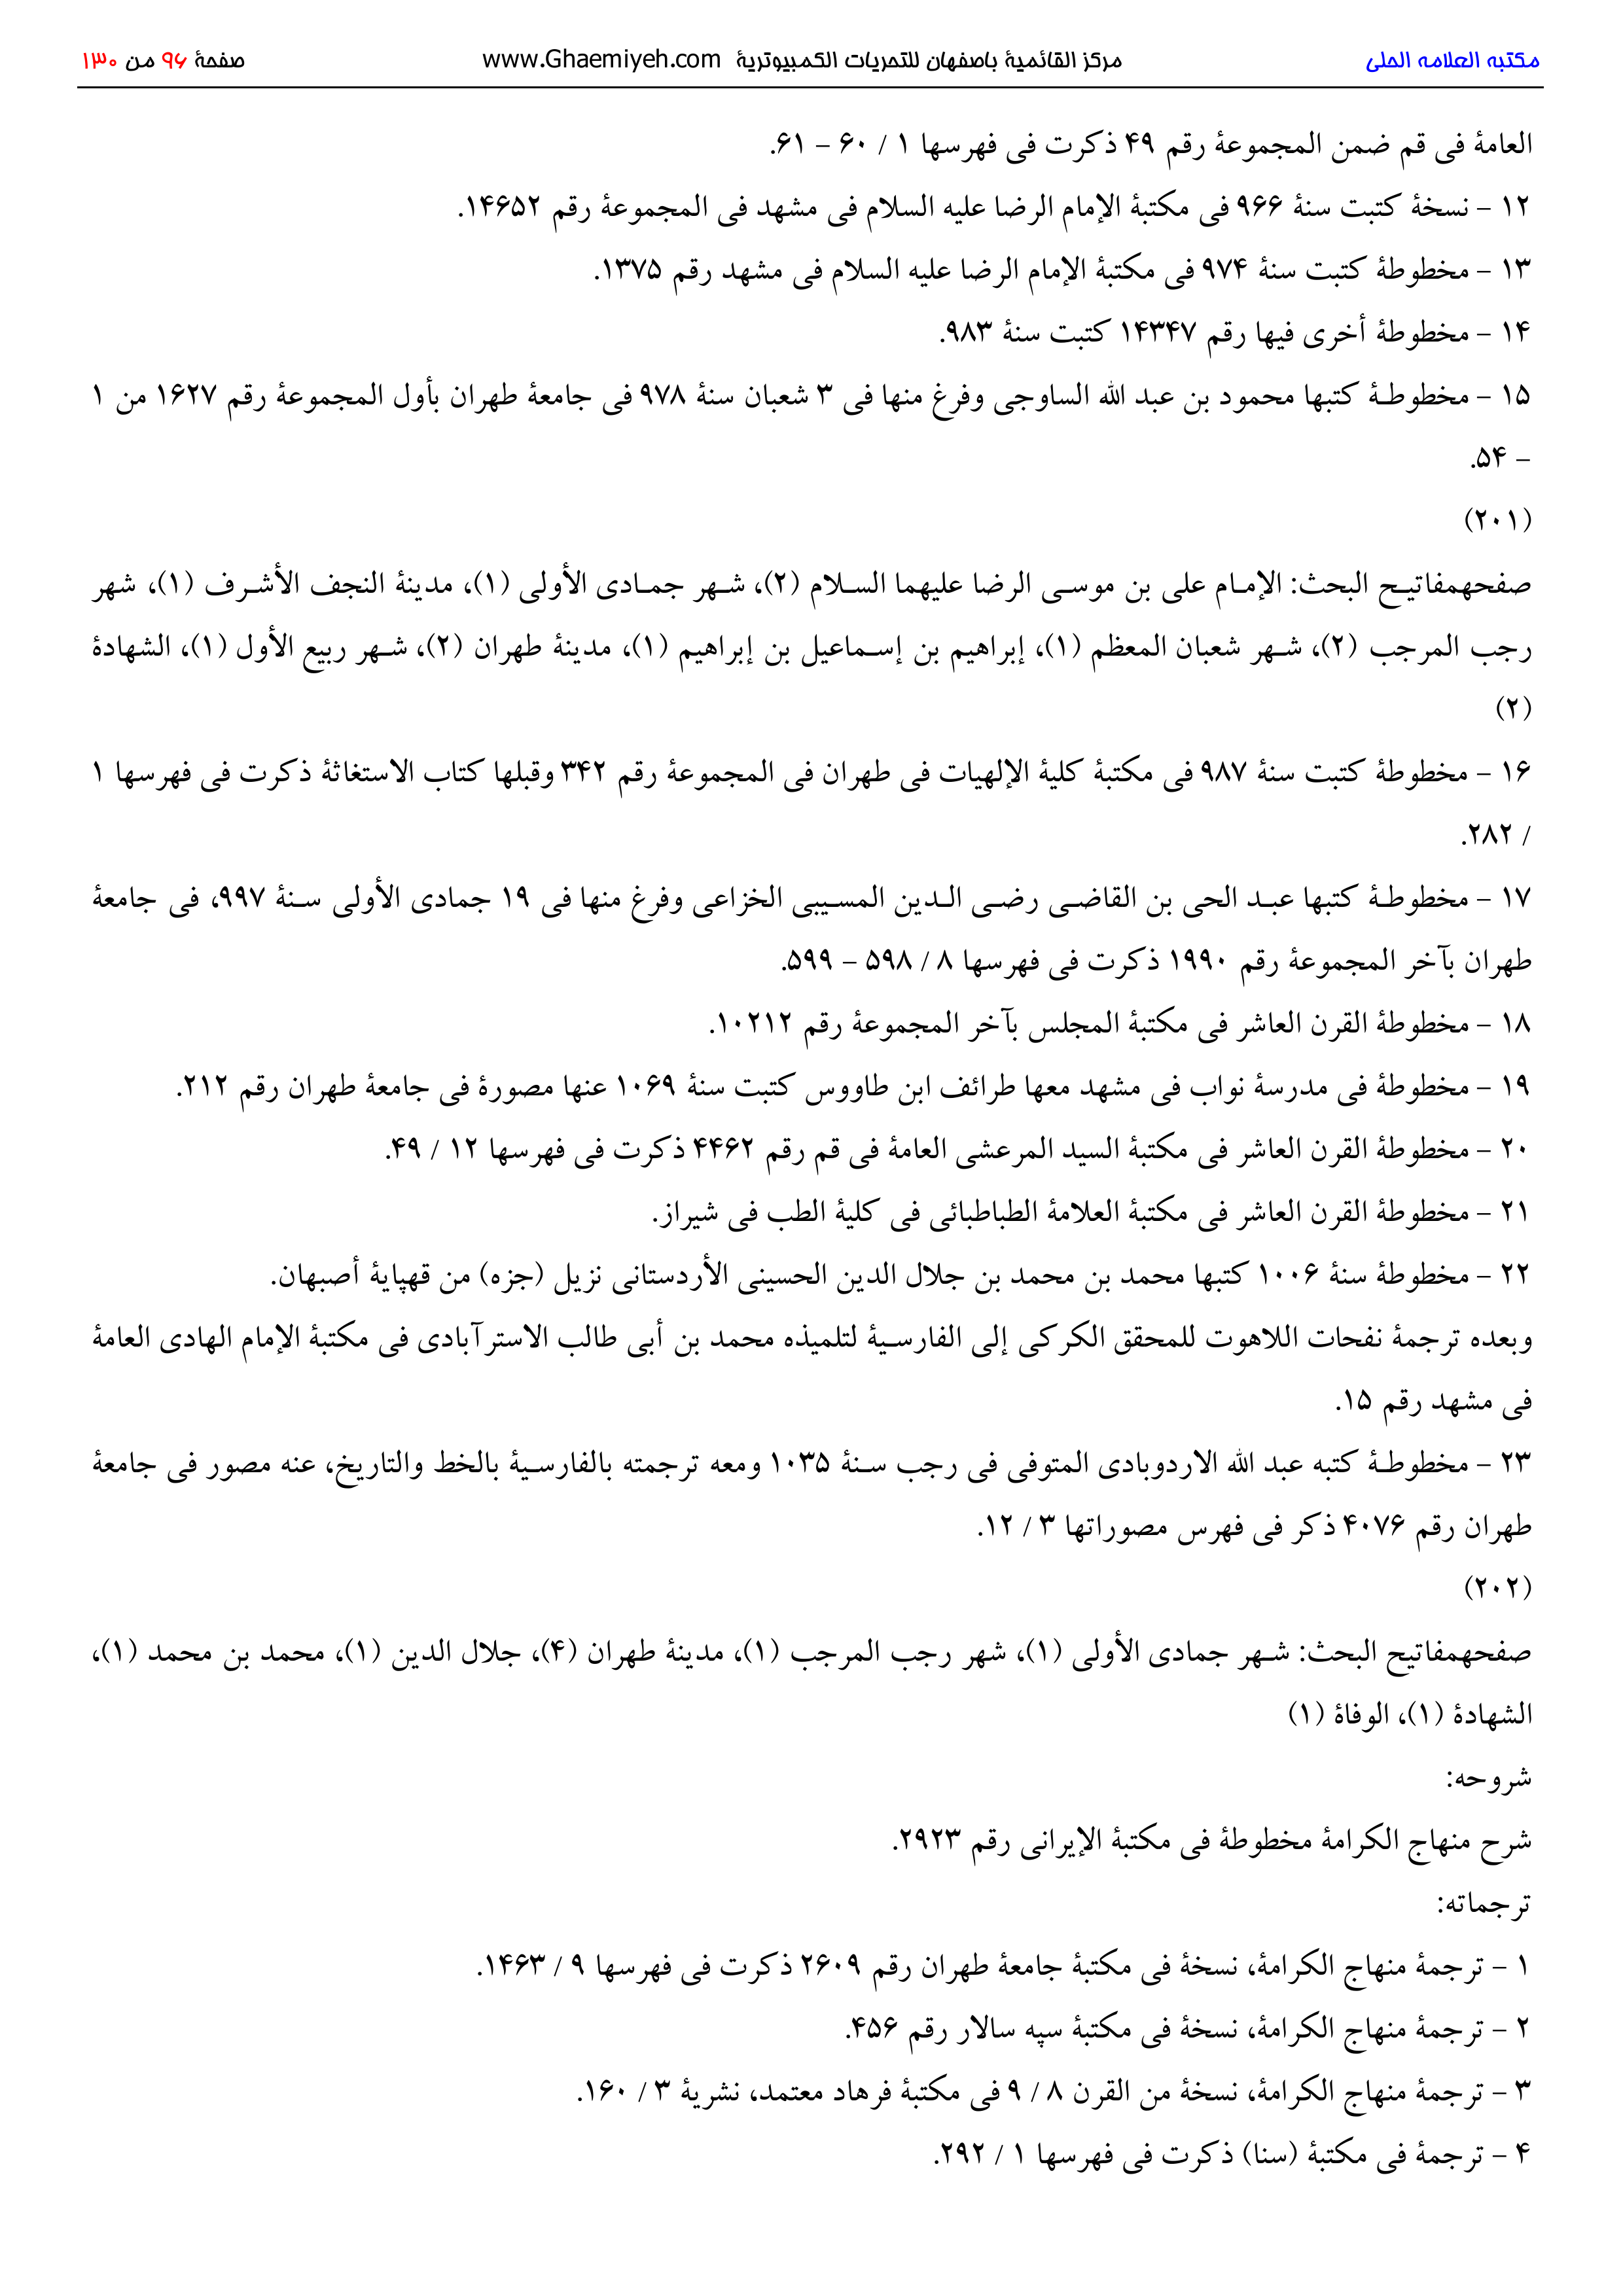 مكتبه العلامه الحلى مركز القائميۀ باصفهان للتحريات الكمبيوتريۀ www.Ghaemiyeh.com صفحۀ ۹۶ من ۱۳۰
العامۀ فى قم ضمن المجموعۀ رقم ۴۹ ذكرت فى فهرسها ۱ / ۶۰ – ۶۱.
۱۲ – نسخۀ كتبت سنۀ ۹۶۶ فى مكتبۀ الإمام الرضا عليه السلام فى مشهد فى المجموعۀ رقم ۱۴۶۵۲.
۱۳ – مخطوطۀ كتبت سنۀ ۹۷۴ فى مكتبۀ الإمام الرضا عليه السلام فى مشهد رقم ۱۳۷۵.
۱۴ – مخطوطۀ أخرى فيها رقم ۱۴۳۴۷ كتبت سنۀ ۹۸۳.
۱۵ – مخطوطـۀ كتبها محمود بن عبد الله الساوجى وفرغ منها فى ۳ شعبان سنۀ ۹۷۸ فى جامعۀ طهران بأول المجموعۀ رقم ۱۶۲۷ من ۱
– ۵۴.
(۲۰۱)
صفحهمفاتيـح البحث: الإمـام على بن موسـى الرضا عليهما السـلام (۲)، شـهر جمـادى الأولى (۱)، مدينۀ النجف الأشـرف (۱)، شهر
رجب المرجب (۲)، شـهر شعبان المعظم (۱)، إبراهيم بن إسـماعيل بن إبراهيم (۱)، مدينۀ طهران (۲)، شـهر ربيع الأول (۱)، الشهادۀ
(۲)
۱۶ – مخطوطۀ كتبت سنۀ ۹۸۷ فى مكتبۀ كليۀ الإلهيات فى طهران فى المجموعۀ رقم ۳۴۲ وقبلها كتاب الاستغاثۀ ذكرت فى فهرسها ۱
/ ۲۸۲.
۱۷ – مخطوطـۀ كتبها عبـد الحى بن القاضـى رضـى الـدين المسـيبى الخزاعى وفرغ منها فى ۱۹ جمادى الأولى سـنۀ ۹۹۷، فى جامعۀ
طهران بآخر المجموعۀ رقم ۱۹۹۰ ذكرت فى فهرسها ۸ / ۵۹۸ – ۵۹۹.
۱۸ – مخطوطۀ القرن العاشر فى مكتبۀ المجلس بآخر المجموعۀ رقم ۱۰۲۱۲.
۱۹ – مخطوطۀ فى مدرسۀ نواب فى مشهد معها طرائف ابن طاووس كتبت سنۀ ۱۰۶۹ عنها مصورۀ فى جامعۀ طهران رقم ۲۱۲.
۲۰ – مخطوطۀ القرن العاشر فى مكتبۀ السيد المرعشى العامۀ فى قم رقم ۴۴۶۲ ذكرت فى فهرسها ۱۲ / ۴۹.
۲۱ – مخطوطۀ القرن العاشر فى مكتبۀ العلامۀ الطباطبائى فى كليۀ الطب فى شيراز.
۲۲ – مخطوطۀ سنۀ ۱۰۰۶ كتبها محمد بن محمد بن جلال الدين الحسينى الأردستانى نزيل (جزه) من قهپايۀ أصبهان.
وبعده ترجمۀ نفحات اللاهوت للمحقق الكركى إلى الفارسـيۀ لتلميذه محمد بن أبى طالب الاسترآبادى فى مكتبۀ الإمام الهادى العامۀ
فى مشهد رقم ۱۵.
۲۳ – مخطوطـۀ كتبه عبد الله الاردوبادى المتوفى فى رجب سـنۀ ۱۰۳۵ ومعه ترجمته بالفارسـيۀ بالخط والتاريخ، عنه مصور فى جامعۀ
طهران رقم ۴۰۷۶ ذكر فى فهرس مصوراتها ۳ / ۱۲.
(۲۰۲)
صفحهمفاتيح البحث: شـهر جمادى الأولى (۱)، شهر رجب المرجب (۱)، مدينۀ طهران (۴)، جلال الدين (۱)، محمد بن محمد (۱)،
الشهادۀ (۱)، الوفاۀ (۱)
شروحه:
شرح منهاج الكرامۀ مخطوطۀ فى مكتبۀ الإيرانى رقم ۲۹۲۳.
ترجماته:
۱ – ترجمۀ منهاج الكرامۀ، نسخۀ فى مكتبۀ جامعۀ طهران رقم ۲۶۰۹ ذكرت فى فهرسها ۹ / ۱۴۶۳.
۲ – ترجمۀ منهاج الكرامۀ، نسخۀ فى مكتبۀ سپه سالار رقم ۴۵۶.
۳ – ترجمۀ منهاج الكرامۀ، نسخۀ من القرن ۸ / ۹ فى مكتبۀ فرهاد معتمد، نشريۀ ۳ / ۱۶۰.
۴ – ترجمۀ فى مكتبۀ (سنا) ذكرت فى فهرسها ۱ / ۲۹۲.